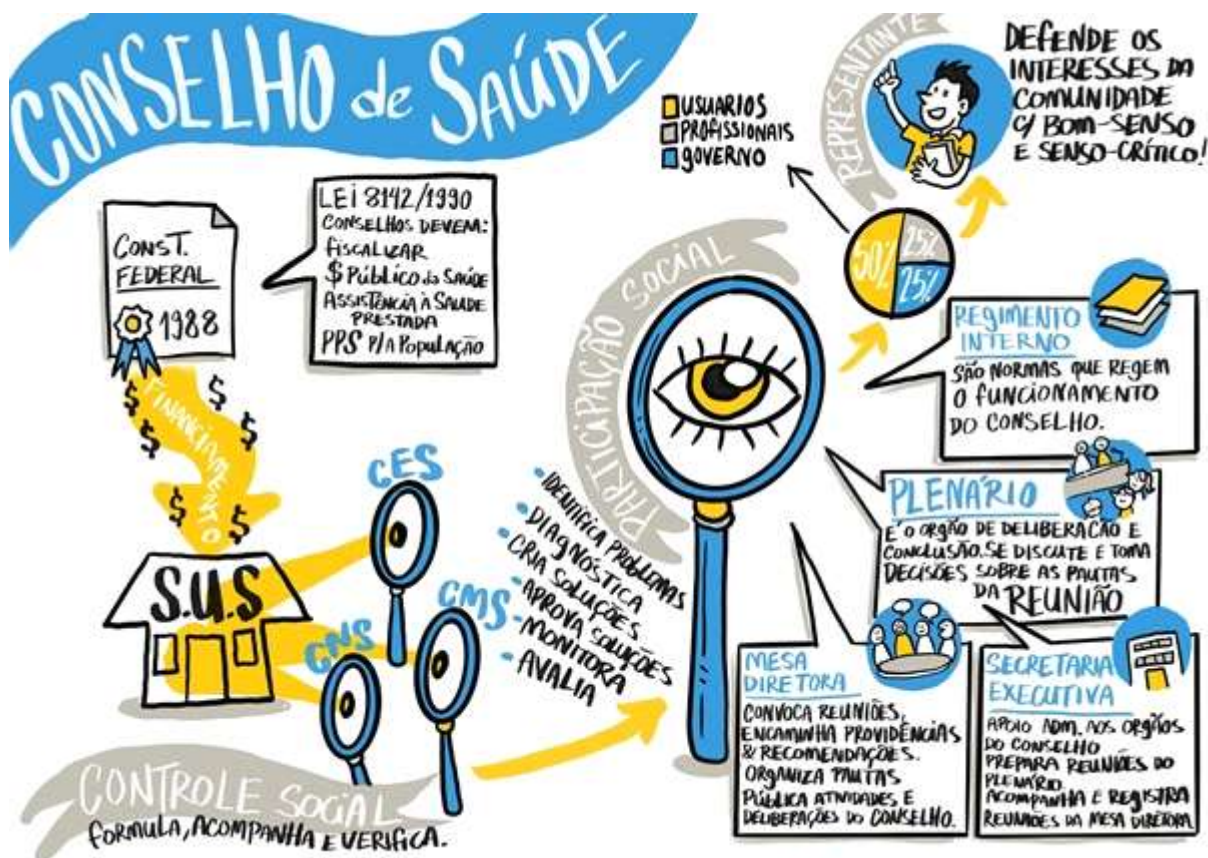 CONSELHO de SAÚDE
CONST.
FEDERAL
1988
LEI 8142/1990
CONSELHOS DEVEM:
FISCALIZAR
$ PÚBLICO da SAÚDE
ASSISTÊNCIA À SAUDE
PRESTADA
PPS P/A POPULAÇÃO
FINANCIAMENTO
$ $ $ $ $ $
S.U.S
CES
CMS
CNS
CONTROLE SOCIAL
FORMULA, ACOMPANHA E VERIFICA.
• IDENTIFICA PROBLEMAS
• DIAGNÓSTICA
• CRIA SOLUÇÕES
• APROVA SOLUÇÕES
• MONITORA
• AVALIA
PARTICIPAÇÃO SOCIAL
USUARIOS
PROFISSIONAIS
GOVERNO
50%
25%
25%
REPRESENTANTE
DEFENDE OS
INTERESSES DA
COMUNIDADE
C/ BOM-SENSO
E SENSO-CRÍTICO!
REGIMENTO
INTERNO
SÃO NORMAS QUE REGEM
O FUNCIONAMENTO
DO CONSELHO.
PLENÁRIO
E'O ORGÃO DE DELIBERAÇÃO E
CONCLUSÃO. SE DISCUTE E TOMA
DECISÕES SOBRE AS PAUTAS
DA REUNIÃO
MESA
DIRETORA
CONVOCA REUNIÕES,
ENCAMINHA PROVIDÊNCIAS
& RECOMENDAÇÕES.
ORGANIZA PAUTAS
PÚBLICA ATIVIDADES E
DELIBERAÇÕES DO CONSELHO.
SECRETARIA
EXECUTIVA
APOIO ADM. AOS ORGÃOS
DO CONSELHO
PREPARA REUNIÕES DO
PLENÁRIO.
ACOMPANHA E REGISTRA
REUNIÕES DA MESA DIRETORA